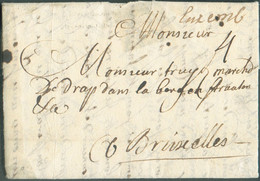 Luxemb
Monsieur
4
Monsieur truy marchd
De drap dans la
A Bruxelles